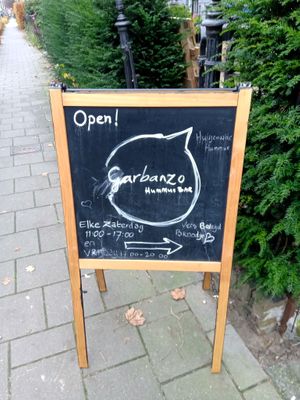 Open!
Huisgemaakte
Hummus
Garbanzo
Hummus Bar
Elke Zaterdag
11:00-17:00
en
Vrijdag 17:00-20:00
Vers Belegd
Broodje